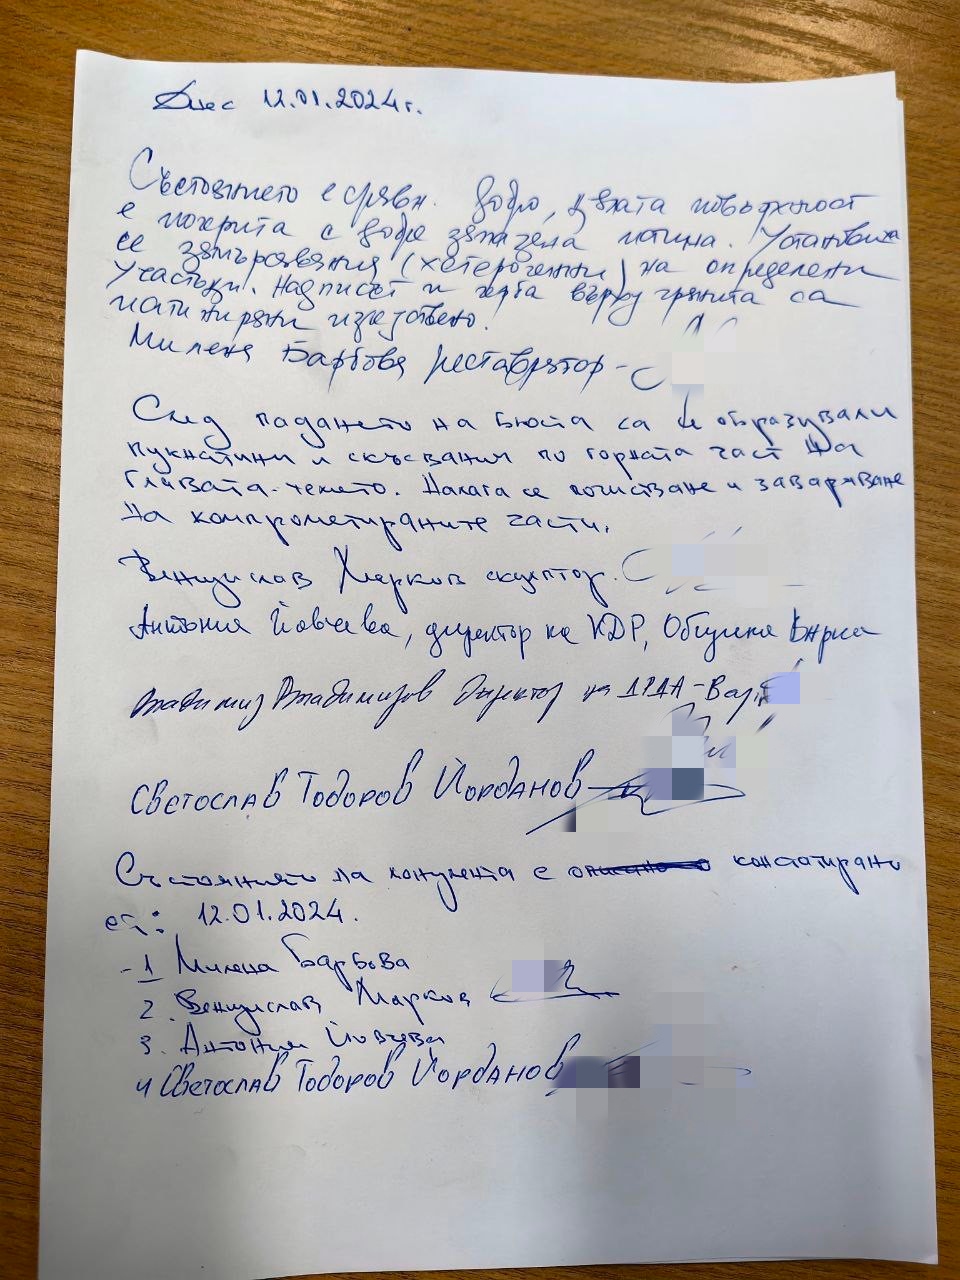 Днес 12.01.2024 г.
Състоянието е сравн. добро, цялата повърхност
е покрита с добре запазена патина. Установиха
се замърсявания (хетерогенни) на определени
участъци. Надписът и герба върху гранита са
патинирани изкуствено.
Милена Барбова реставратор -
След падането на бюста са се образували
пукнатини и скъсвания по горната част на
главата - темето. Налага се почистване и заваряване
на компрометираните части.
Венцислав Марков скулптор.
Антония Йовчева, директор на КДР, Община Варна
Владимир Владимиров Директор на ДРДА - Вар
Светослав Тодоров Йорданов
Състоянието на монумента е констатирано
от: 12.01.2024.
1 Милена Барбова
2. Венцислав Марков
3. Антония Йовчева
4 Светослав Тодоров Йорданов